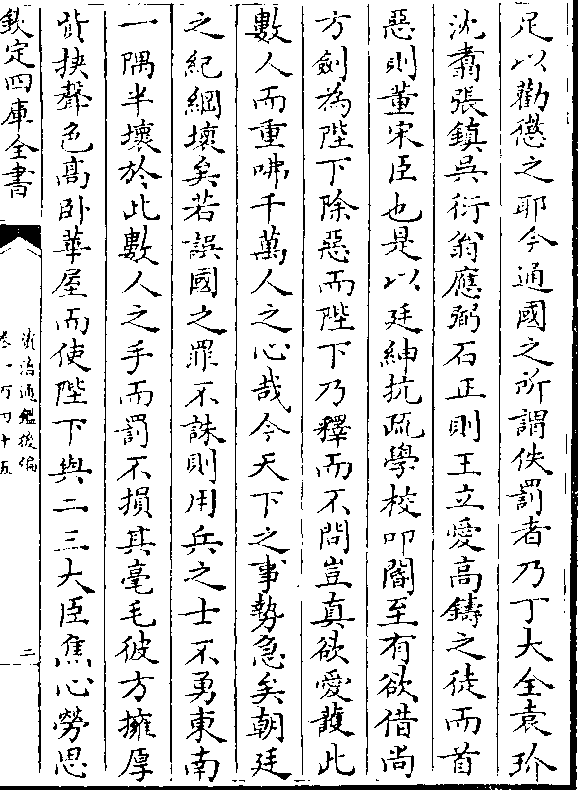 足以勸懲之耶今通國之所謂佚罰者乃丁大全袁玠
沈翥張鎮吳衍翁應弼石正則王立愛高鑄之徒而首
惡則董宋臣也是以廷紳抗疏學校叩閽至有欲借尚
方劍為陛下除惡而陛下乃釋而不問豈真欲愛護此
數人而重咈千萬人之心哉今天下之事勢急矣朝廷
之紀綱壞矣若誤國之罪不誅則用兵之士不勇東南
一隅半壞於此數人之手而罰不損其毫毛彼方擁厚
貲挾聲色高卧華屋而使陛下與二三大臣焦心勞思
欽定四庫全書
資治通鑑後編
卷一百四十五
二